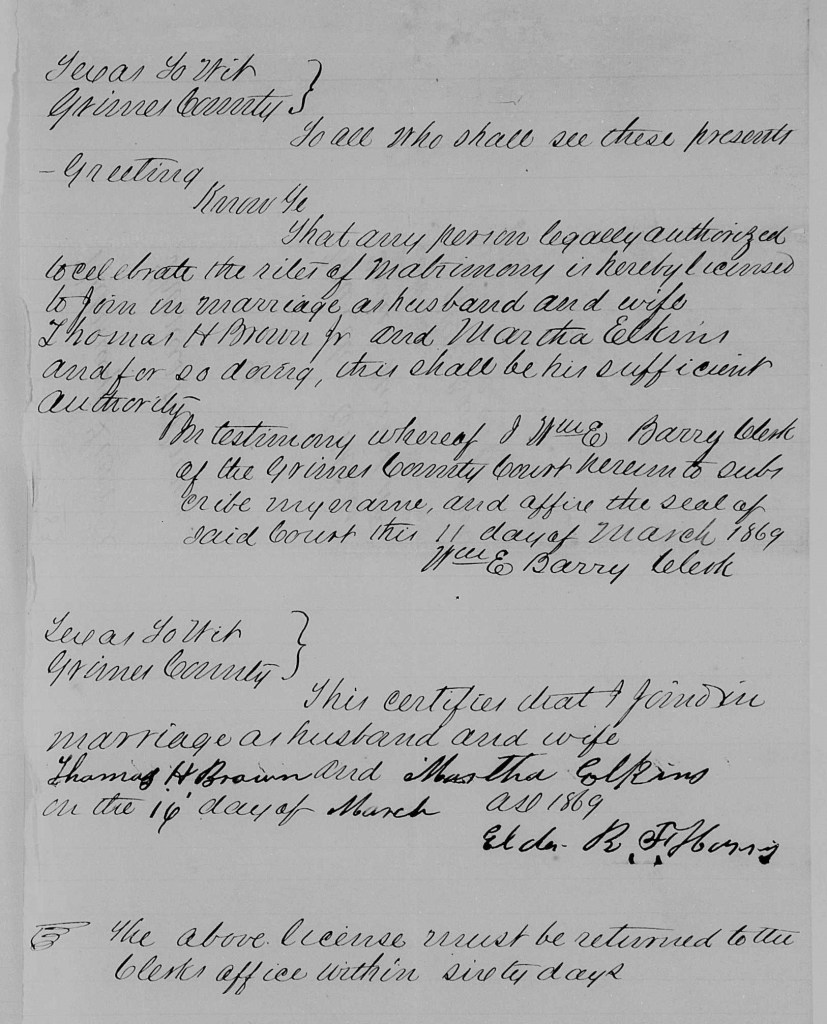 Texas To Wit }
Grimes County }
To all who shall see these presents
- Greeting
Know Ye
That any person legally authorized
to celebrate the rites of Matrimony is hereby licensed
to Join in marriage as husband and wife
Thomas H Brown Jr and Martha Elkins
and for so doing, this shall be his sufficient
authority
In testimony whereof I Wm E Barry Clerk
of the Grimes County Court hereunto subs
cribe my name, and affix the seal of
said Court this 11 day of March 1869
Wm E Barry Clerk
Texas To Wit }
Grimes County }
This certifies that I Joind in
marriage as husband and wife
Thomas H Brown and Martha Elkins
on the 16 day of March AD 1869
Elder R. F.
☞ The above license must be returned to the
Clerks office within sixty days